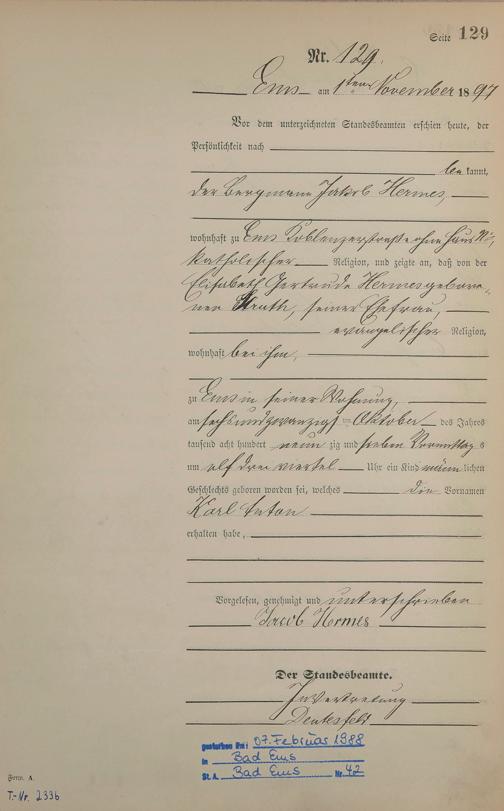 Seite 129
Nr. 129.
Ems am 1ten November 1897
Vor dem unterzeichneten Standesbeamten erschien heute, der
Persönlichkeit nach
bekannt,
der Bergmann Jakob Hermes,
wohnhaft zu Ems Koblenzerstraße ohne Haus Nr.,
katholischer Religion, und zeigte an, daß von der
Elisabeth Gertrude Hermes gebore-
nen, seiner Ehefrau,
evangelischer Religion,
wohnhaft bei ihm,
zu Ems in seiner Wohnung,
am sechsundzwanzigs= Oktober des Jahres
tausend acht hundert neunzig und sieben Vormittags
um elf drei viertel Uhr ein Kind männlichen
Geschlechts geboren worden sei, welches die Vornamen
Karl Anton
erhalten habe,
Vorgelesen, genehmigt und unterschrieben
Jacob Hermes
Der Standesbeamte.
In Vertretung
gestorben am: 07. Februar 1988
in Bad Ems
St. A. Bad Ems Nr 42
Form. A.
T.-Nr. 2336